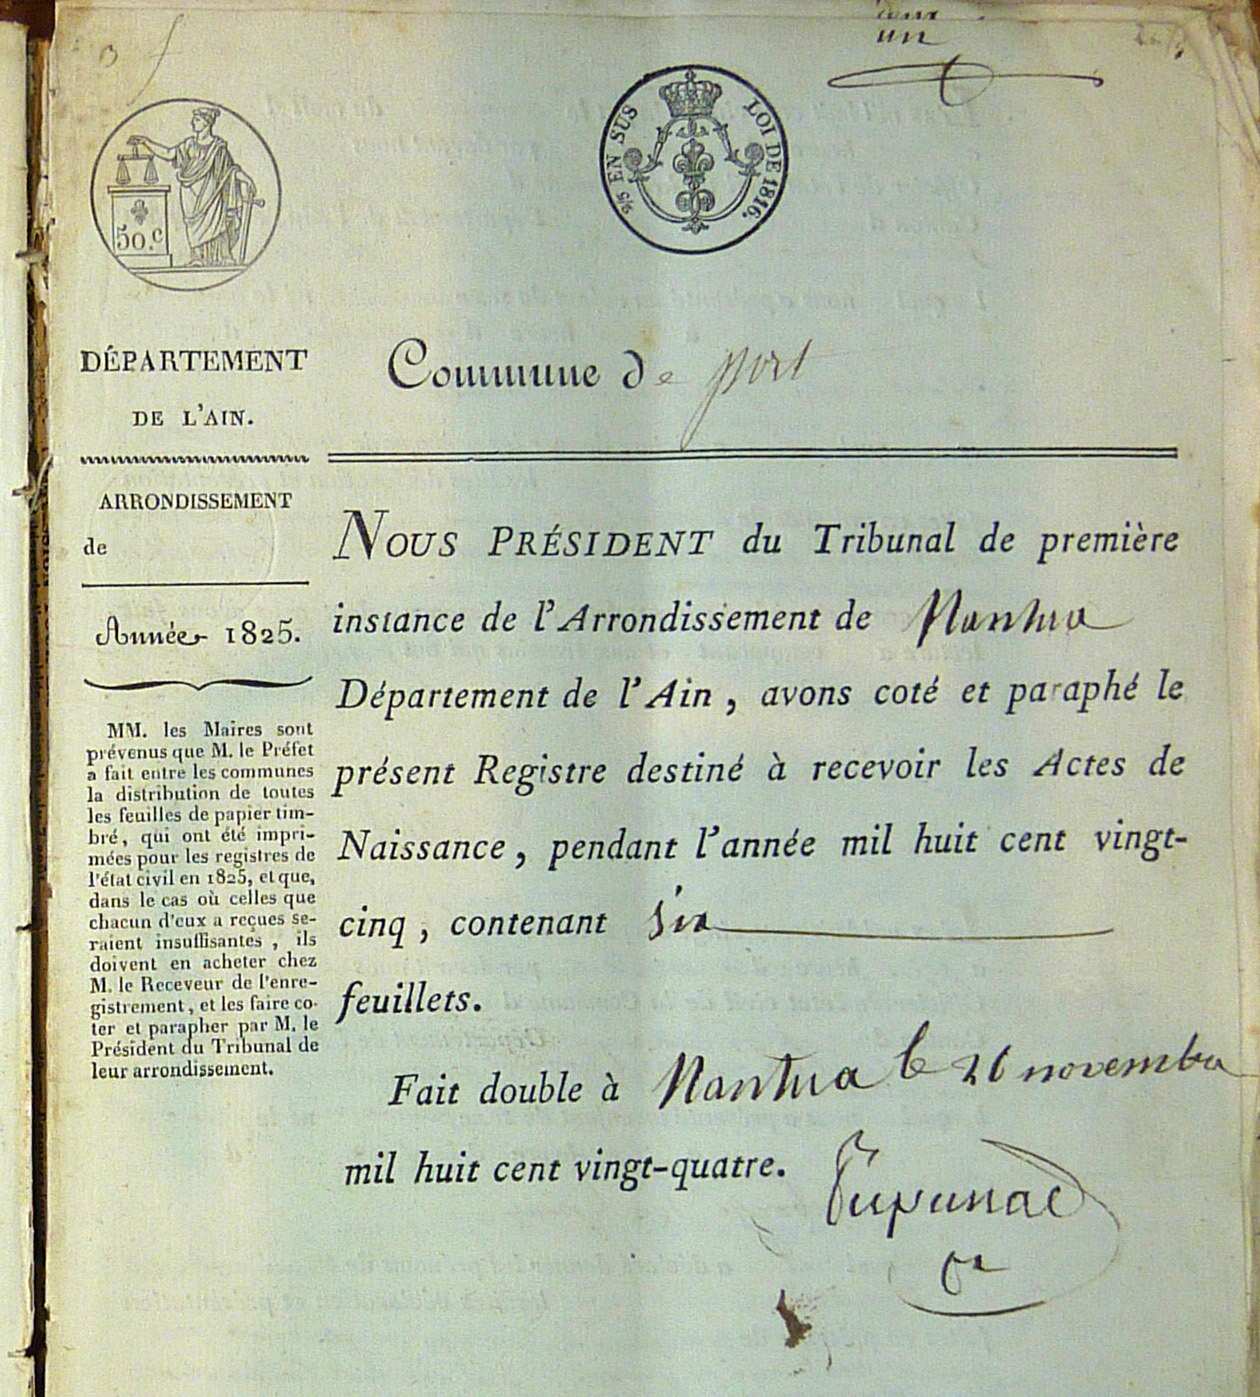 un
5/6 EN SUS
LOI DE 1816.
50.c
DÉPARTEMENT
DE L'AIN.
Commune de port
ARRONDISSEMENT
de
Année 1825.
MM. les Maires sont
prévenus que M. le Préfet
a fait entre les communes
la distribution de toutes
les feuilles de papier tim-
bré, qui ont été impri-
mées pour les registres de
l'état civil en 1825, et que,
dans le cas où celles que
chacun d'eux a reçues se-
raient insuffisantes, ils
doivent en acheter chez
M. le Receveur de l'enre-
gistrement, et les faire co-
ter et parapher par M. le
Président du Tribunal de
leur arrondissement.
NOUS PRÉSIDENT du Tribunal de première
instance de l'Arrondissement de Nantua
Département de l'Ain, avons coté et paraphé le
présent Registre destiné à recevoir les Actes de
Naissance, pendant l'année mil huit cent vingt-
cinq, contenant six
feuillets.
Fait double à Nantua le 26 novembre
mil huit cent vingt-quatre.